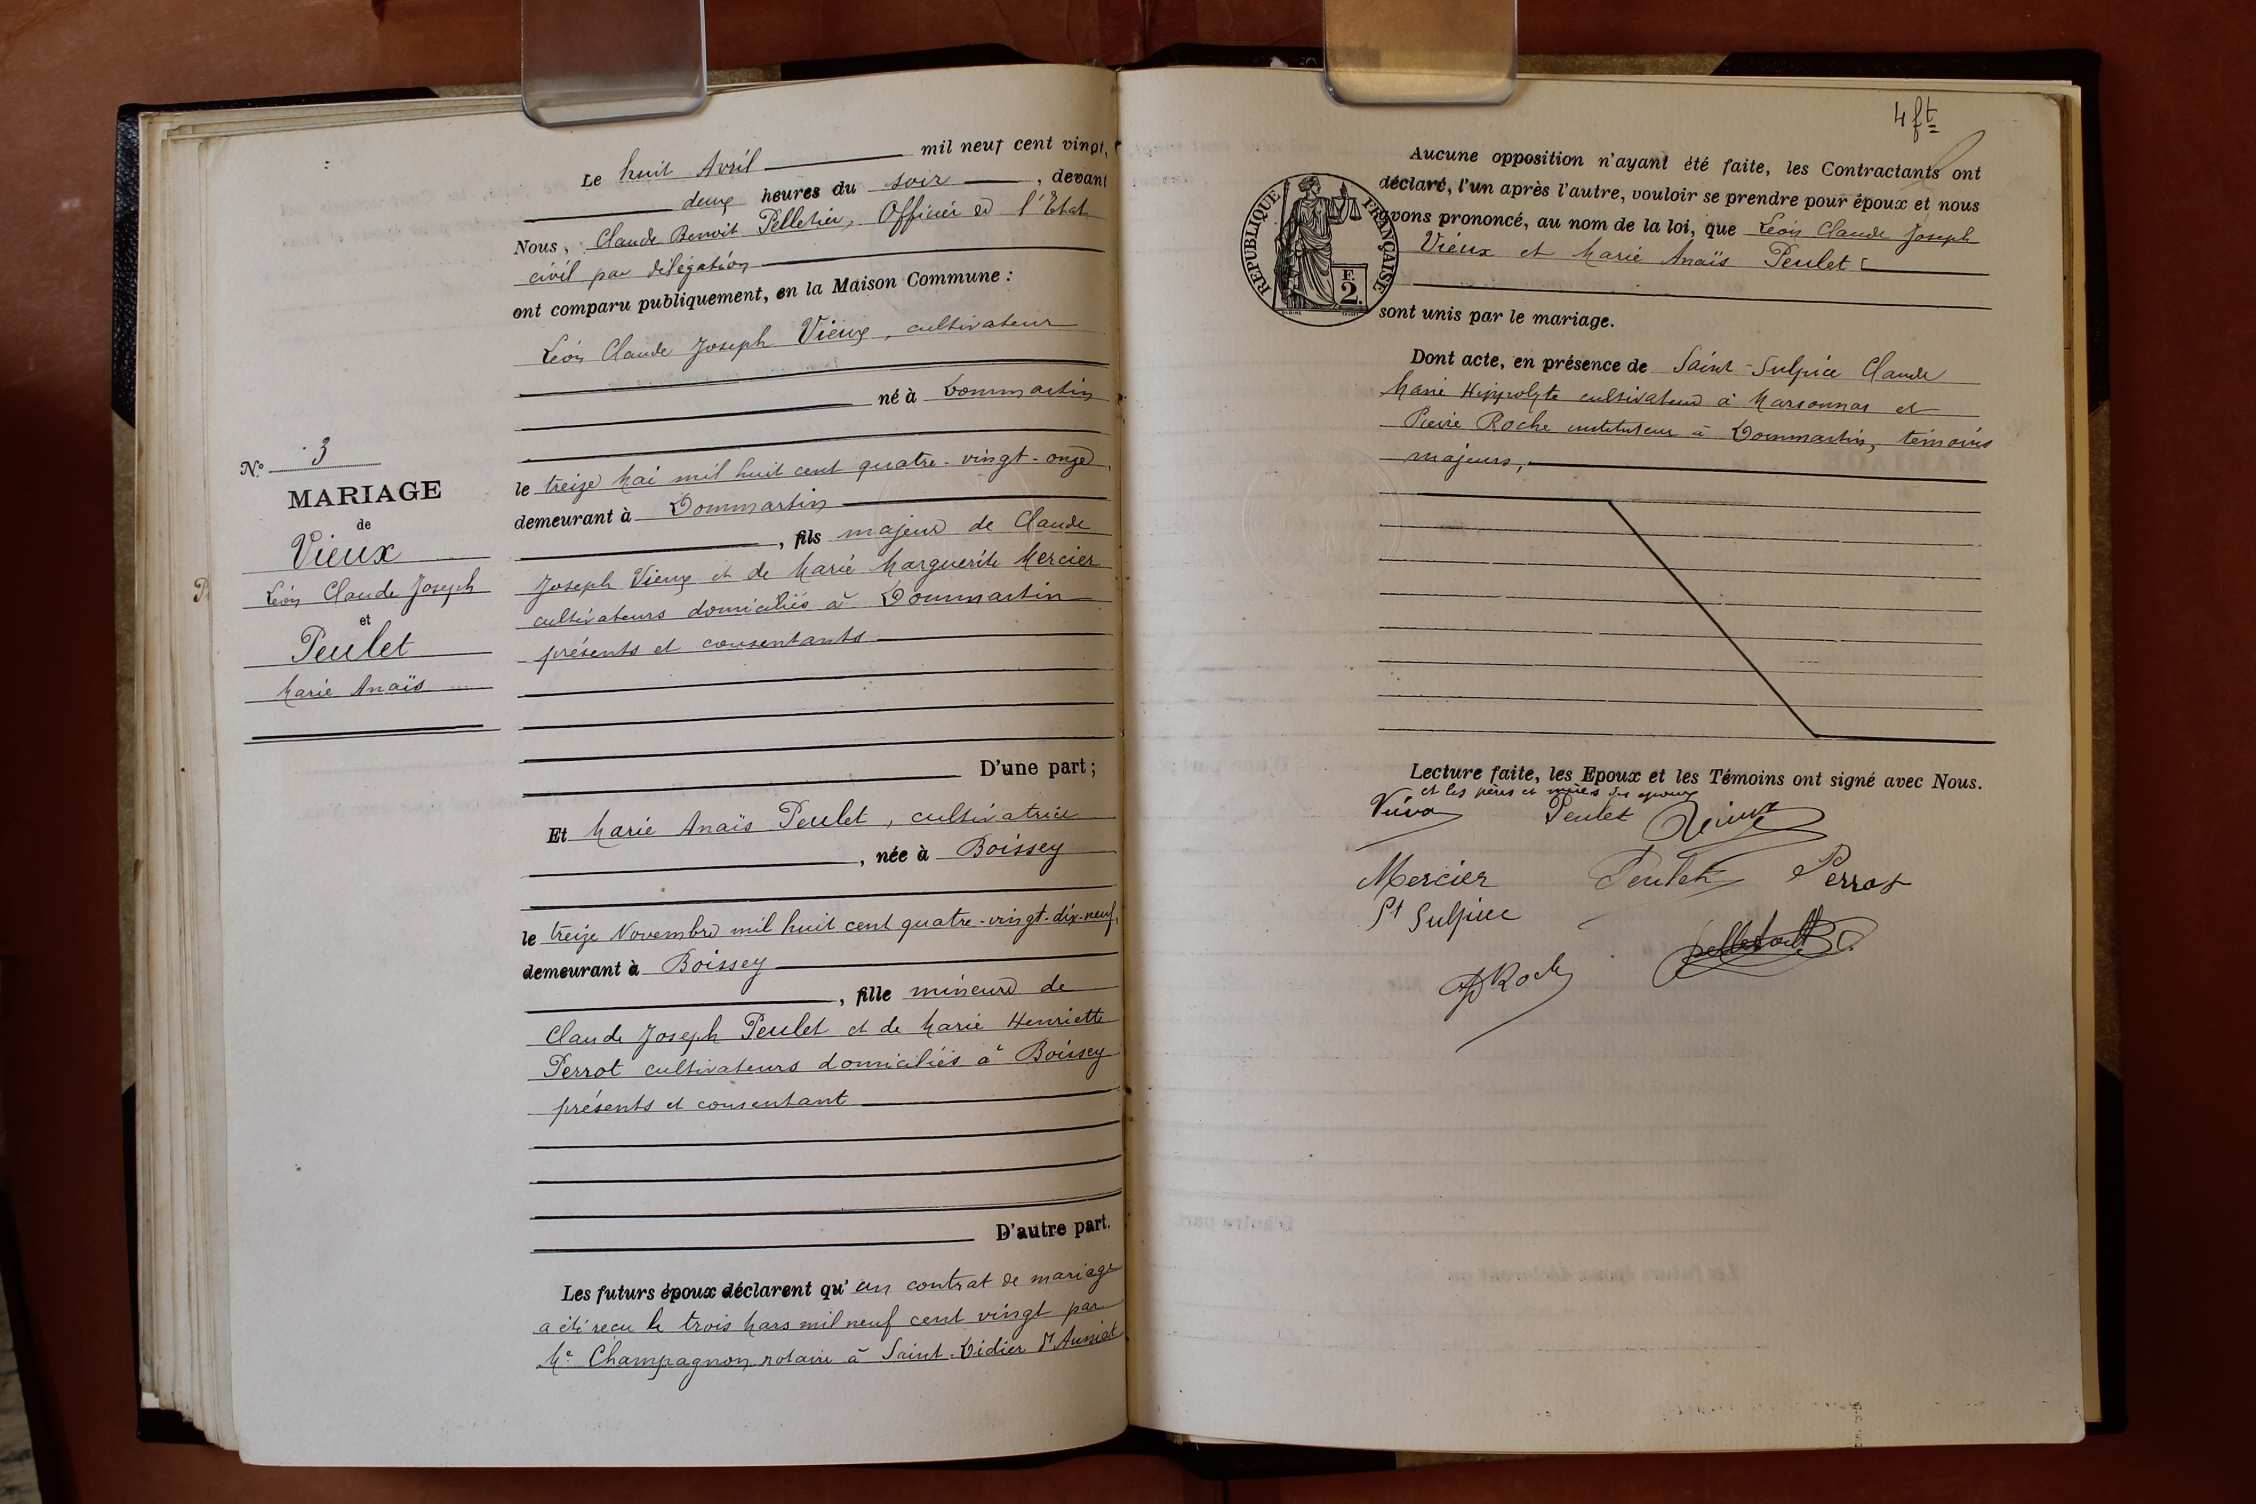 N.º 3
MARIAGE
de
Vieux
Léon Claude Joseph
et
Peulet
Marie Anaïs
Le huit Avril mil neuf cent vingt,
deux heures du soir, devant
Nous, Claude Benoit Pelletier, Officier de l'Etat
civil par délégation
ont comparu publiquement, en la Maison Commune :
Léon Claude Joseph Vieux, cultivateur
né à Dommartin
le treize Mai mil huit cent quatre-vingt-onze,
demeurant à Dommartin
, fils majeur de Claude
Joseph Vieux et de Marie Marguerite Mercier
cultivateurs domiciliés à Dommartin
présents et consentants
D'une part ;
Et Marie Anaïs Peulet, cultivatrice
, née à Boissey
le treize Novembre mil huit cent quatre-vingt-dix-neuf,
demeurant à Boissey
, fille mineure de
Claude Joseph Peulet et de Marie Henriette
Perrot cultivateurs domiciliés à Boissey
présents et consentant
D'autre part.
Les futurs époux déclarent qu'un contrat de mariage
a été reçu le trois Mars mil neuf cent vingt par
Me Champagnon notaire à Saint-Didier d'Aussiat
4 ft
REPUBLIQUE FRANÇAISE
F. 2.
Aucune opposition n'ayant été faite, les Contractants ont
déclaré, l'un après l'autre, vouloir se prendre pour époux et nous
avons prononcé, au nom de la loi, que Léon Claude Joseph
Vieux et Marie Anaïs Peulet
sont unis par le mariage.
Dont acte, en présence de Saint-Sulpice Claude
Marie Hippolyte cultivateur à Marsonnas et
Pierre Roche instituteur à Dommartin, témoins
majeurs,
Lecture faite, les Epoux et les Témoins ont signé avec Nous.
et les pères et mères des époux
Vieux Peulet Vieux
Mercier Peulet Perrot
St Sulpice
P Roche